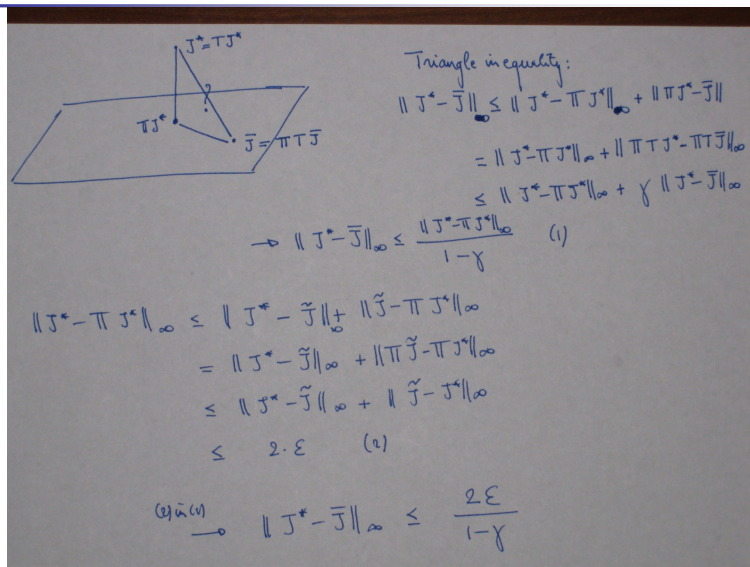 J* = TJ*
?
ΠJ*
J̄ = ΠTJ̄
Triangle inequality:
‖J* − J̄‖∞ ≤ ‖J* − ΠJ*‖∞ + ‖ΠJ* − J̄‖
= ‖J* − ΠJ*‖∞ + ‖ΠTJ* − ΠTJ̄‖∞
≤ ‖J* − ΠJ*‖∞ + γ ‖J* − J̄‖∞
→ ‖J* − J̄‖∞ ≤ ‖J* − ΠJ*‖∞ / 1 − γ (1)
‖J* − ΠJ*‖∞ ≤ ‖J* − J̃‖∞ + ‖J̃ − ΠJ*‖∞
= ‖J* − J̃‖∞ + ‖ΠJ̃ − ΠJ*‖∞
≤ ‖J* − J̃‖∞ + ‖J̃ − J*‖∞
≤ 2·ε (2)
(2) in (1) → ‖J* − J̄‖∞ ≤ 2ε / 1 − γ